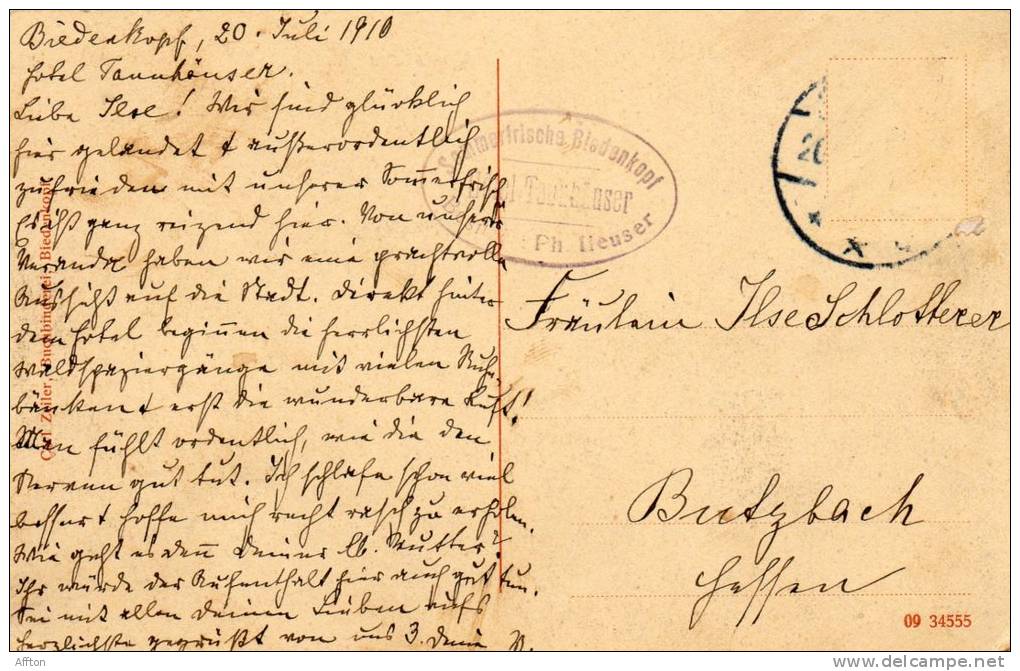 Biedenkopf, 20. Juli 1910
Hotel Tannhäuser.
Liebe Ilse! Wir sind glücklich
hier gelandet & außerordentlich
zufrieden mit unserer Sommerfrische
Es ist ganz reizend hier. Von unserer
Veranda haben wir eine prachtvolle
Aussicht auf die Stadt. Direkt hinter
dem Hotel beginnen die herrlichsten
Waldspaziergänge mit vielen Ruhe-
bänken & erst die wunderbare Luft!
Man fühlt ordentlich, wie die den
Nerven gut tut. Ich schlafe schon viel
besser & hoffe mich recht rasch zu erholen.
Wie geht es denn Deiner lb. Mutter?
Ihr würde der Aufenthalt hier auch gut tun.
Sei mit allen Deinen Lieben aufs
herzlichste gegrüßt von uns 3. Deine
Carl Zeiler, Buchbinderei, Biedenkopf
Sommerfrische Biedenkopf
Hotel Tannhäuser
Ph. Heuser
20
Fräulein Ilse Schlotterer
Butzbach
Hessen
09 34555
Affton
http://www.delcampe.net